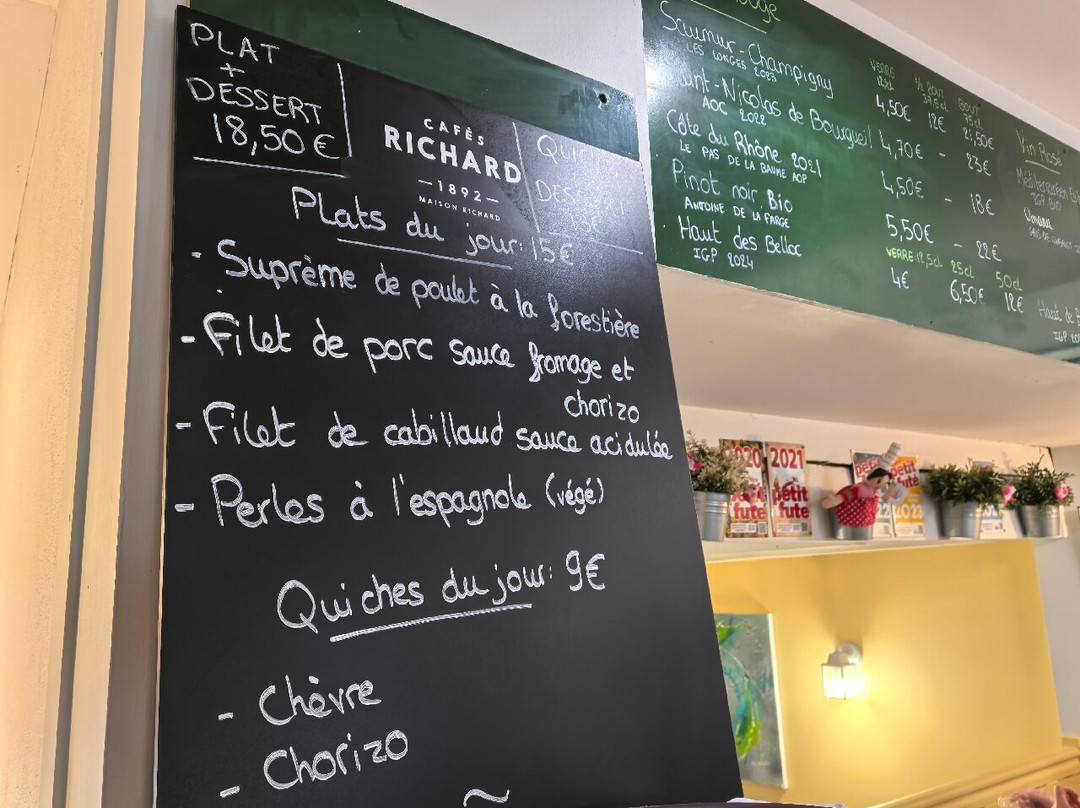 PLAT
+
DESSERT
18,50 €
CAFÉS
RICHARD
— 1892 —
MAISON RICHARD
DESSERT
Plats du jour: 15€
- Suprême de poulet à la forestière
- Filet de porc sauce fromage et
chorizo
- Filet de cabillaud sauce acidulée
- Perles à l'espagnole (végé)
Quiches du jour: 9€
- Chèvre
- Chorizo
~
VERRE
Saumur-Champigny 4,50€ 12€ 21,50€
LES LONGES 2023
Saint-Nicolas de Bourgueil 4,70€ - 23€
AOC 2022
Côte du Rhône 2021 4,50€ - 18€
LE PAS DE LA BAUME AOP
Pinot noir Bio 5,50€ - 22€
ANTOINE DE LA FARGE
VERRE 12,5cl 25cl 50cl
Haut des Bellac 4€ 6,50€ 12€
IGP 2024
Vin Rosé
2020
petit
fute
2021
petit
fute
petit
fute
2023